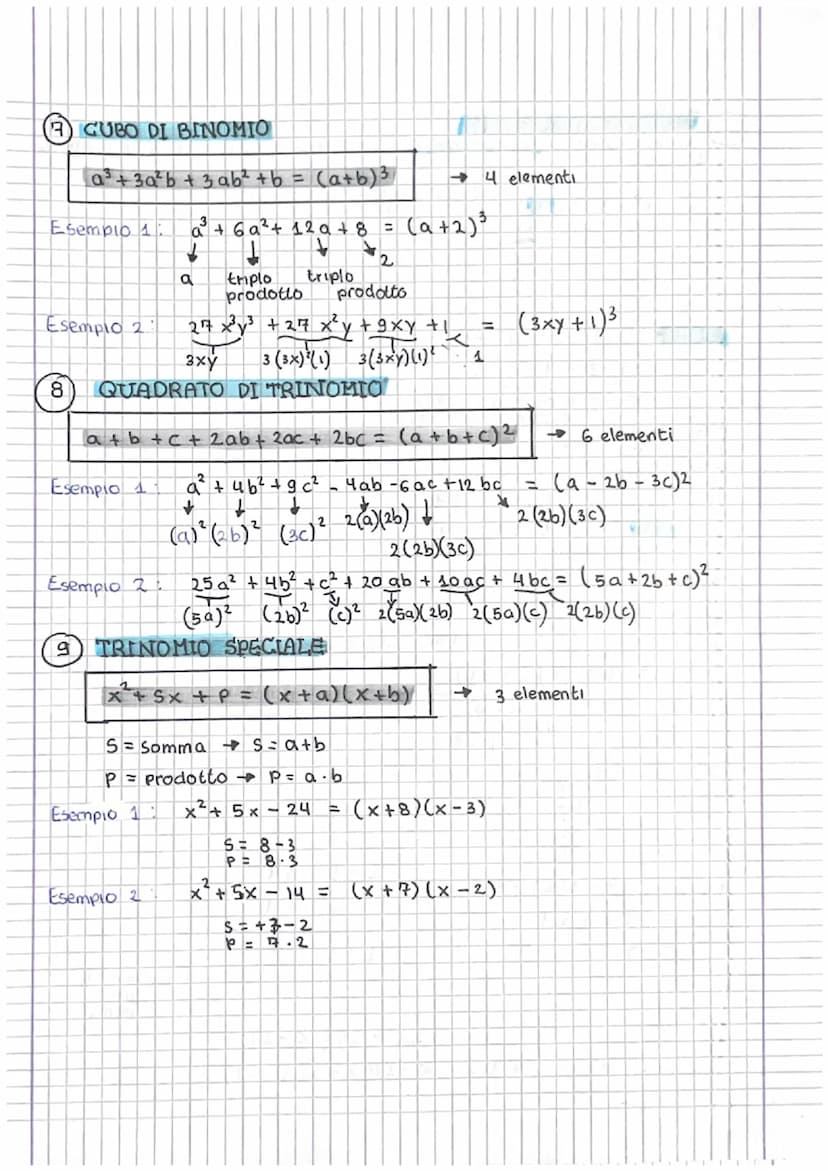 7 CUBO DI BINOMIO
a³ + 3a²b + 3ab² + b = (a+b)³ → 4 elementi
Esempio 1: a³ + 6a² + 12a + 8 = (a+2)³
↓ ↓ ↓ ↘ 2
a triplo prodotto triplo prodotto
Esempio 2: 27 x³y³ + 27 x²y + 9xy + 1 = (3xy + 1)³
3xy 3(3x)²(1) 3(3xy)(1)² 1
8 QUADRATO DI TRINOMIO
a + b + c + 2ab + 2ac + 2bc = (a+b+c)² → 6 elementi
Esempio 1: a² + 4b² + 9c² - 4ab - 6ac + 12bc = (a - 2b - 3c)2
↓ ↓ ↓ ↓ ↓ ↘
(a)² (2b)² (3c)² 2(a)(2b) 2(2b)(3c)
2(2b)(3c)
Esempio 2: 25a² + 4b² + c² + 20ab + 10ac + 4bc = (5a+2b+c)²
(5a)² (2b)² (c)² 2(5a)(2b) 2(5a)(c) 2(2b)(c)
9 TRINOMIO SPECIALE
x² + Sx + P = (x+a)(x+b) → 3 elementi
S = somma → S = a+b
P = prodotto → P = a·b
Esempio 1: x² + 5x - 24 = (x+8)(x-3)
S = 8-3
P = 8·3
Esempio 2: x² + 5x - 14 = (x+7)(x-2)
S = +7-2
P = 7·2